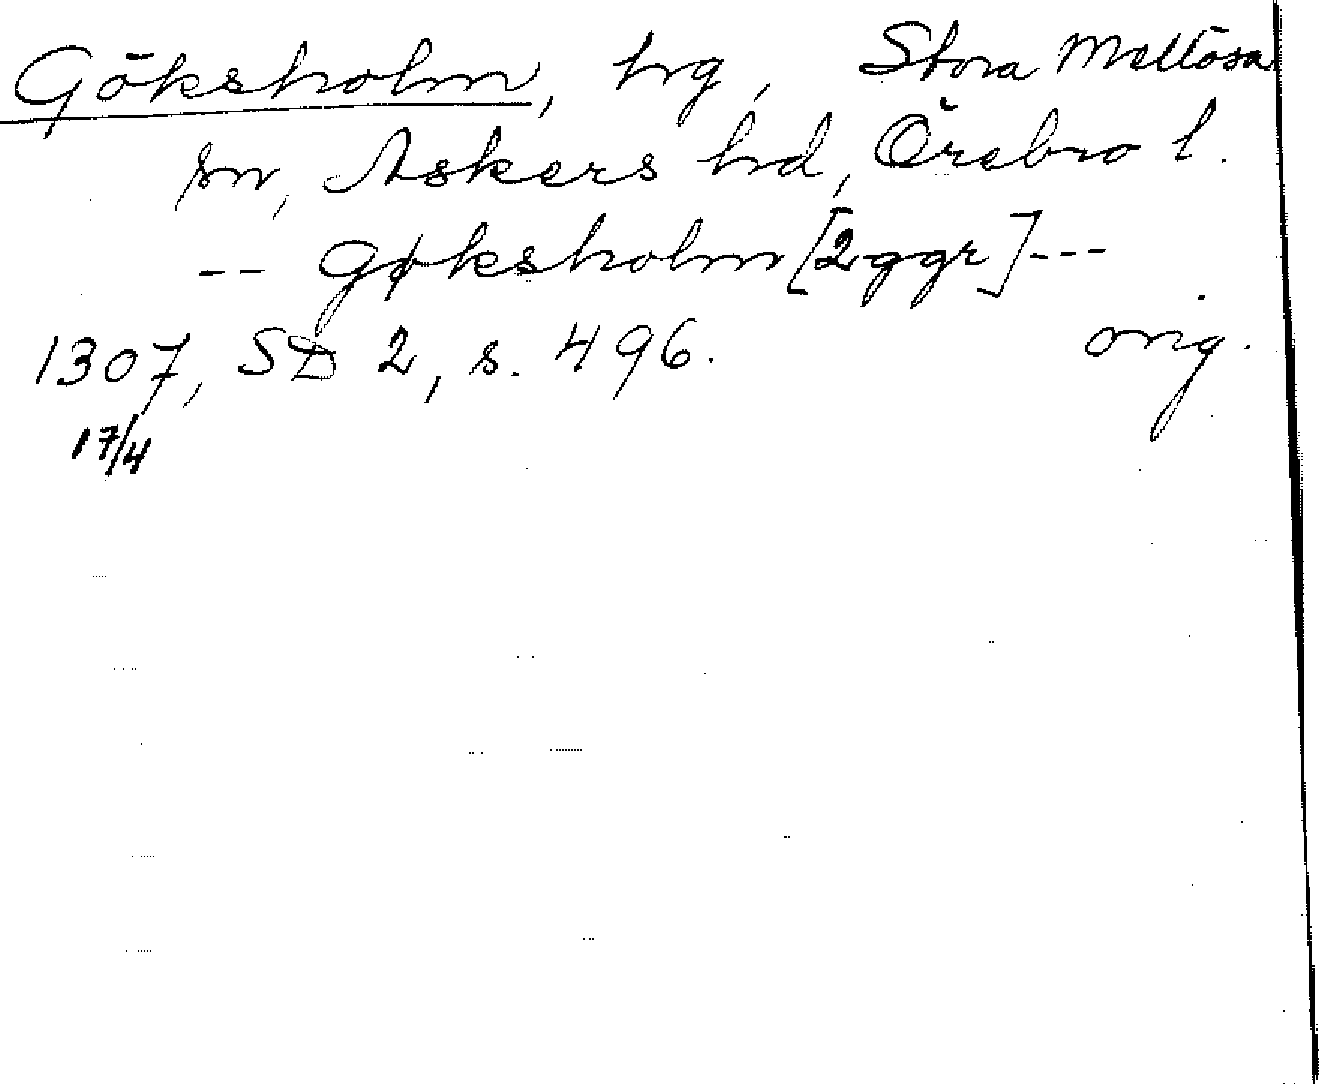 Göksholm, hrg, Stora Mellösa
sn, Askers hrd, Örebro l.
-- gøksholm [2 ggr] ---
1307, SD 2, s. 496. orig.
17/4